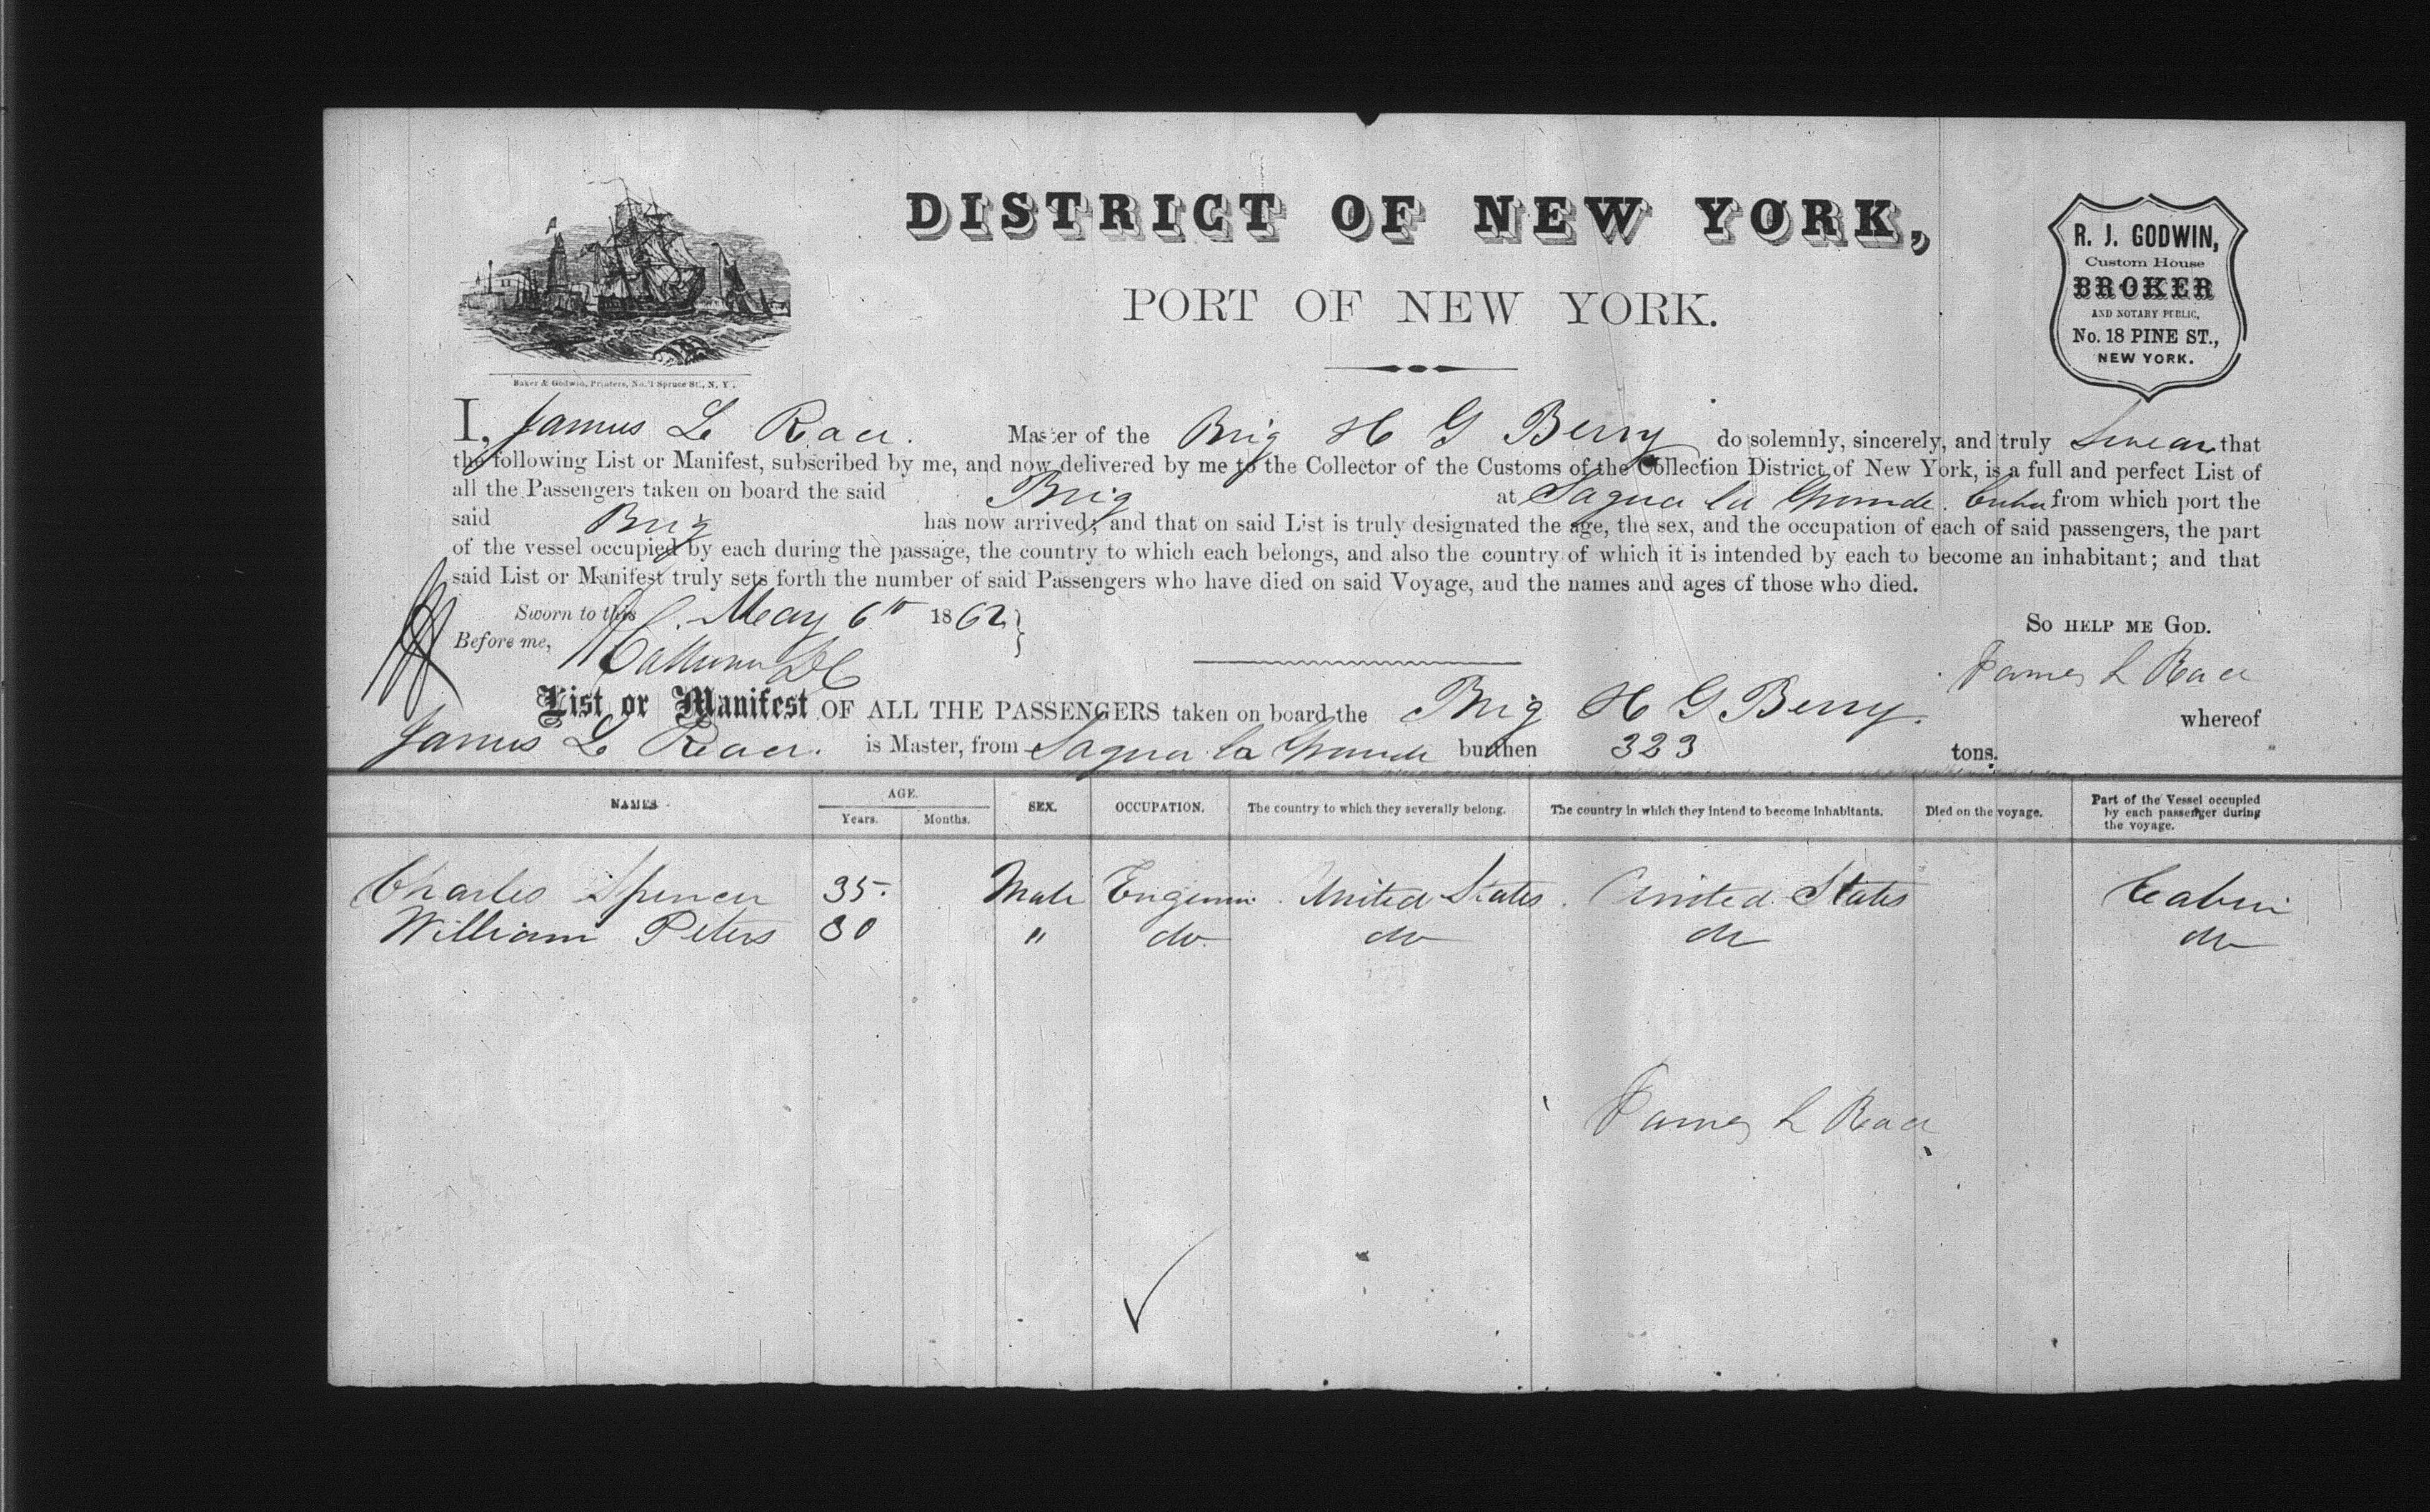 DISTRICT OF NEW YORK,
PORT OF NEW YORK.
R. J. GODWIN,
Custom House
BROKER
AND NOTARY PUBLIC,
No. 18 PINE ST.,
NEW YORK.
Baker & Godwin, Printers, No. 1 Spruce St., N. Y.
I, James L Race. Master of the Brig H G Berry do solemnly, sincerely, and truly Swear that
the following List or Manifest, subscribed by me, and now delivered by me to the Collector of the Customs of the Collection District of New York, is a full and perfect List of
all the Passengers taken on board the said Brig at Sagua la Grande. Cuba from which port the
said Brig has now arrived; and that on said List is truly designated the age, the sex, and the occupation of each of said passengers, the part
of the vessel occupied by each during the passage, the country to which each belongs, and also the country of which it is intended by each to become an inhabitant; and that
said List or Manifest truly sets forth the number of said Passengers who have died on said Voyage, and the names and ages of those who died.
Sworn to this May 6th 1862
So help me God.
Before me, Calhoun DC
James L Race
List or Manifest OF ALL THE PASSENGERS taken on board the Brig H G Berry. whereof
James L Race. is Master, from Sagua la Grande burthen 323 tons.
NAMES AGE. Years. Months. SEX. OCCUPATION. The country to which they severally belong. The country in which they intend to become inhabitants. Died on the voyage. Part of the Vessel occupied by each passenger during the voyage.
Charles Spencer 35 Male Engineer United States United States Cabin
William Peters 30 " do do do do
James L Race